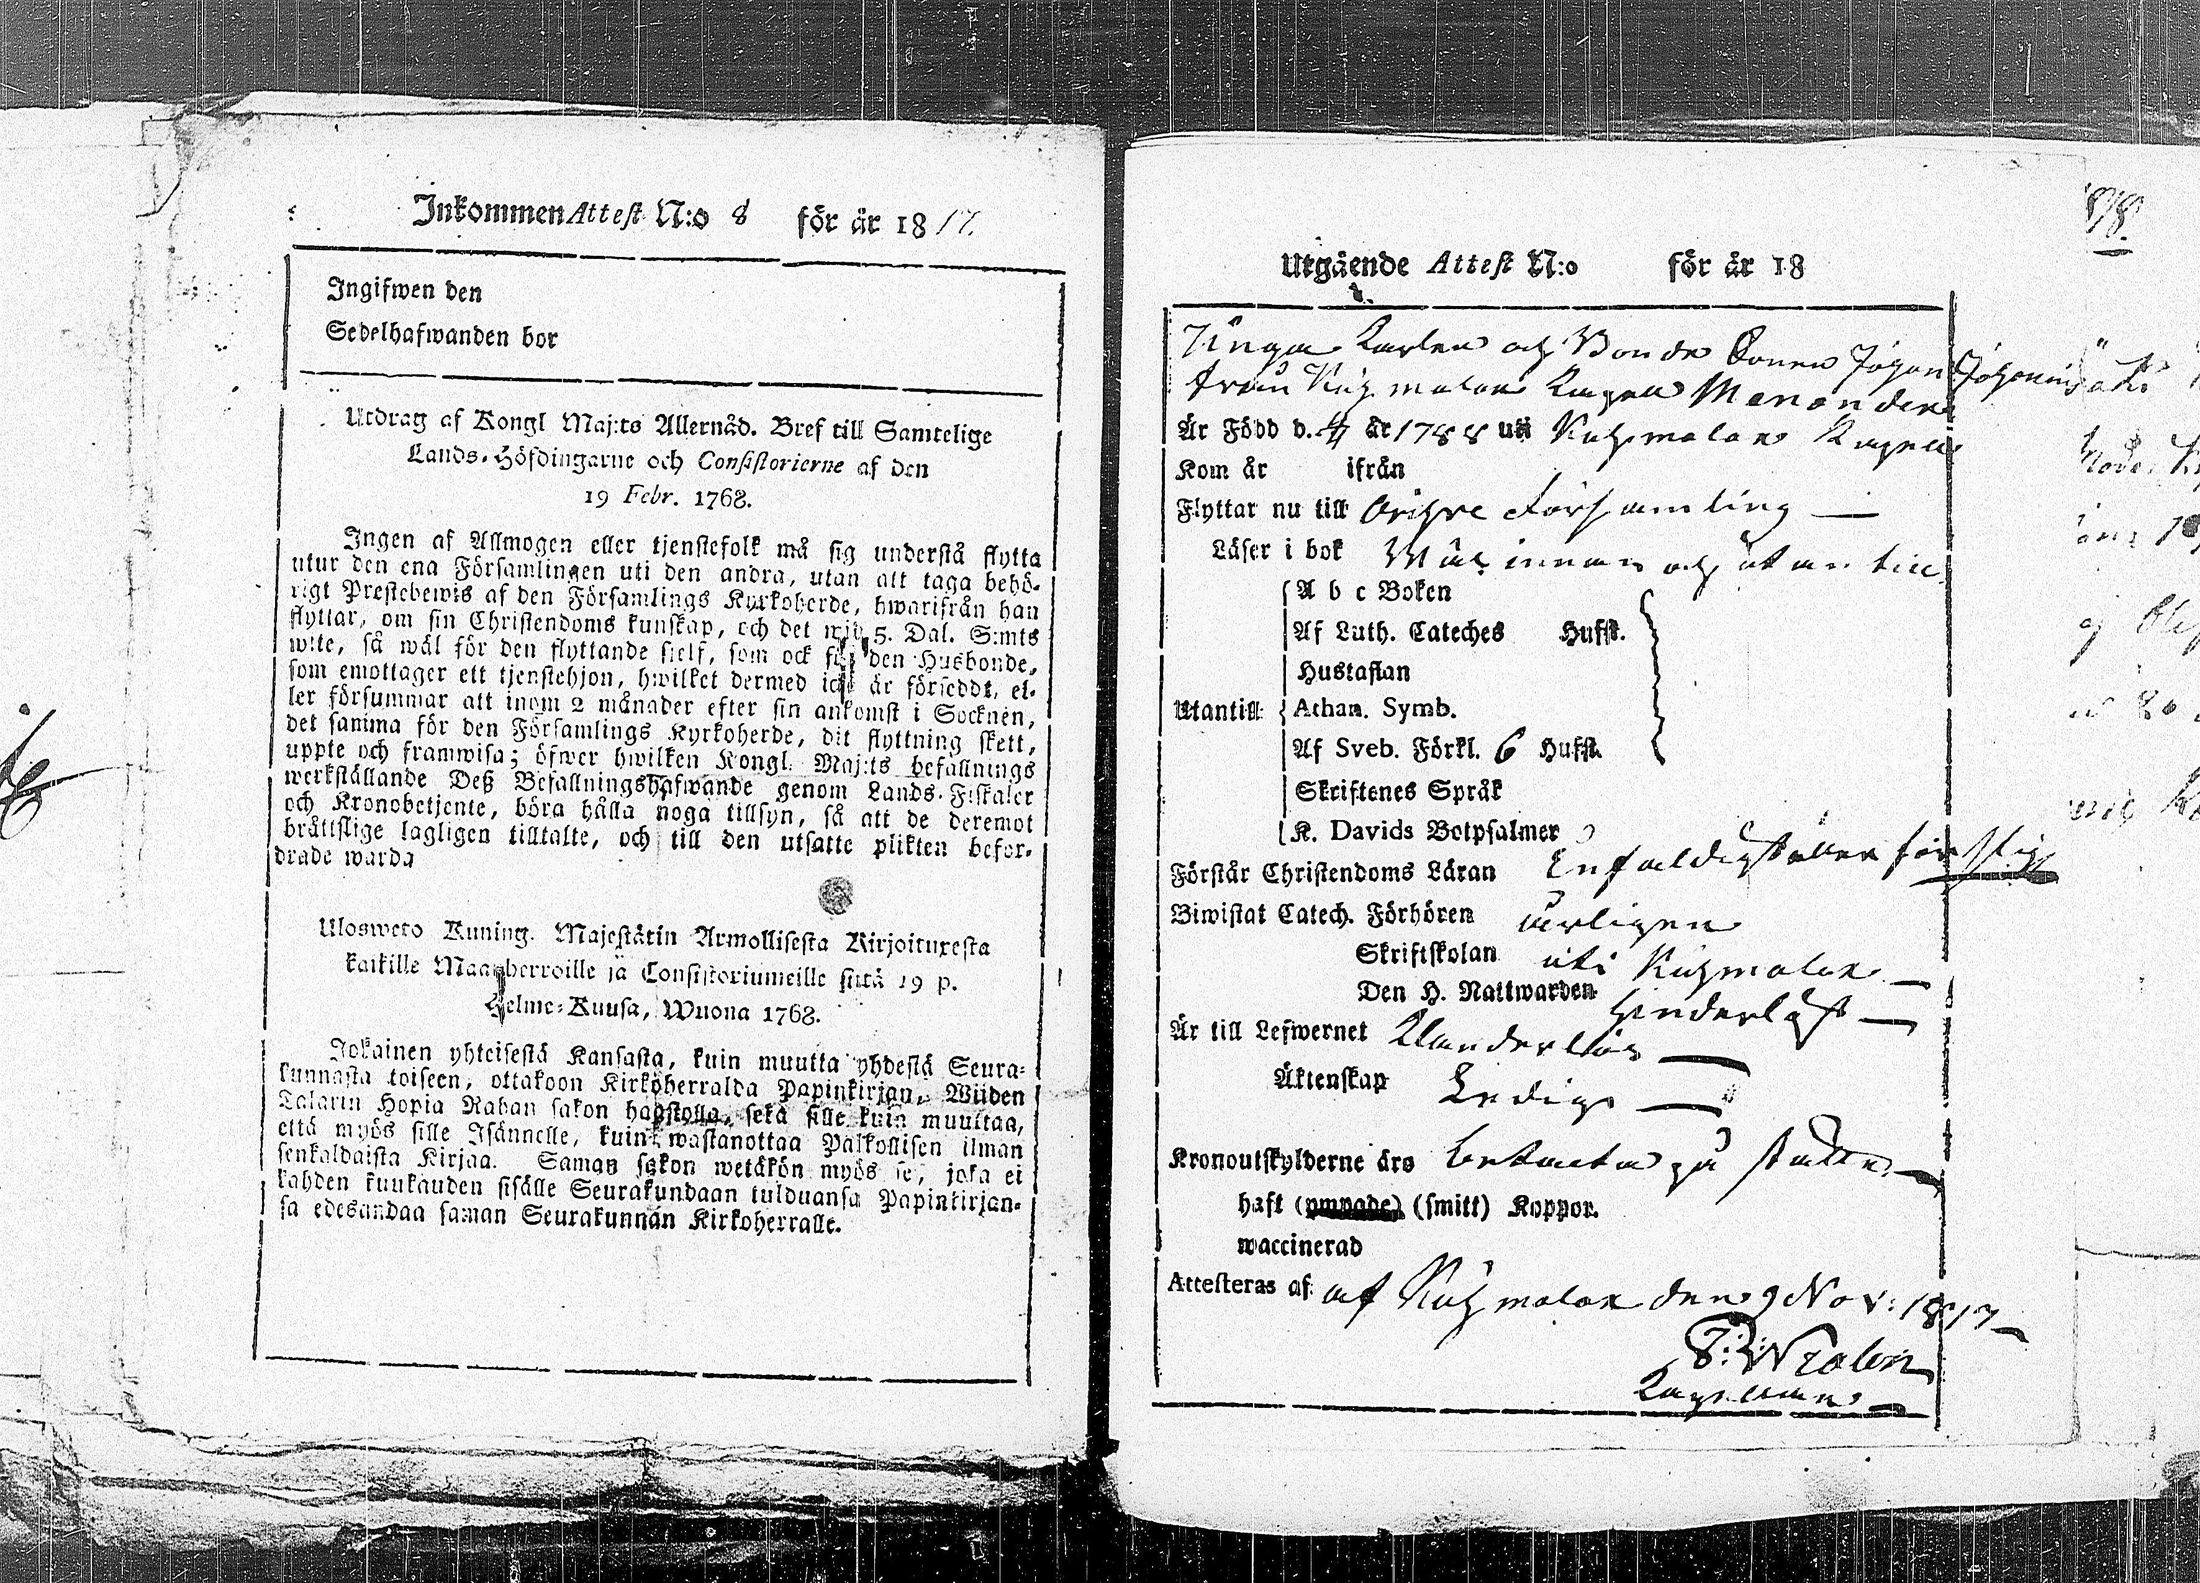 Inkommen Attest N:o 8 för år 1817.
Ingifwen den
Sedelhafwanden bor
Utdrag af Kongl Maj:ts Allernåd. Bref till Samtelige
Lands-Höfdingarne och Consistorierne af den
19 Febr. 1768.
Ingen af Allmogen eller tjenstefolk må sig understå flytta
utur den ena Församlingen uti den andra, utan att taga behö-
rigt Prestebewis af den Församlings Kyrkoherde, hwarifrån han
flyttar, om sin Christendoms kunskap, och det wid 5. Dal. S:mts
wite, så wäl för den flyttande sielf, som ock för den Husbonde,
som emottager ett tjenstehjon, hwilket dermed icke är försedt, el-
ler försummar att inom 2 månader efter sin ankomst i Socknen,
det samma för den Församlings Kyrkoherde, dit flyttning skett,
uppte och framwisa; öfwer hwilken Kongl. Maj:ts befallnings
werkställande Deß Befallningshafwande genom Lands-Fiskaler
och Kronobetjente, böra hålla noga tillsyn, så att de deremot
bråttslige lagligen tilltalte, och till den utsatte plikten befor-
drade warda
Ulosweto Kuning. Majestätin Armollisesta Kirjoituxesta
kaikille Maanherroille ja Consistoriumeille siitä 19 p.
Helme-Kuusa, Wuona 1768.
Jokainen yhteisestä Kansasta, kuin muutta yhdestä Seura-
kunnasta toiseen, ottakoon Kirkoherralda Papinkirjan, Wiiden
Talarin Hopia Rahan sakon haastolla, sekä sille kuin muuttaa,
että myös sille Isännelle, kuin wastanottaa Palkollisen ilman
senkaldaista Kirjaa. Saman sakon wetäkön myös se, joka ei
kahden kuukauden sisälle Seurakundaan tulduansa Papinkirjan-
sa edesandaa saman Seurakunnan Kirkoherralle.
Utgående Attest N:o för år 18
Unga Karlen och Bonde Sonen Johan Johansson
från Kuhmalax Capell Menonden
Är Född d. 4 år 1788 uti Kuhmalax Capell
Kom år ifrån
Flyttar nu till Församling
Läser i bok Wäl innan och utan till
A b c Boken
Af Luth. Cateches Hufst.
Hustaflan
Utantill Athan. Symb.
Af Sveb. Förkl. 6 Hufst.
Skriftenes Språk
K. Davids Botpsalmer
Förstår Christendoms Läran Enfaldigt
Biwistat Catech. Förhören årligen
Skriftskolan uti Kuhmalax
Den H. Nattwarden
Är till Lefwernet Klanderlös
Äktenskap Ledig
Kronoutskylderne äro betalta på stället
haft (ympade) (smitt) Koppor.
waccinerad
Attesteras af af Kuhmalax den 9 Nov: 1817
Capellan